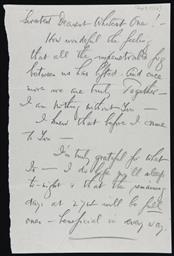 Sweetest Dearest Whitest One! –
How wonderful the feeling
that all the impenetrable fog
between us has lifted. And once
more we are truly Together –
I am Nothing without You –
I knew that before I came
to You –
I'm truly grateful for what
Is – I do hope you'll sleep
to-night & that the remaining
days at will be full
ones – beneficial in every way